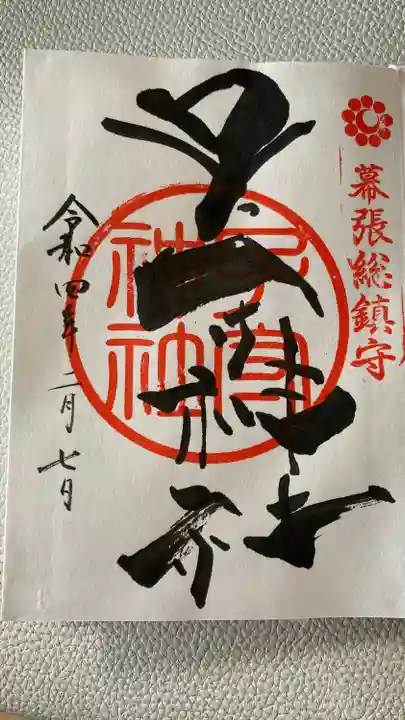 幕張総鎮守
子守神社
子守神社
令和四年二月七日